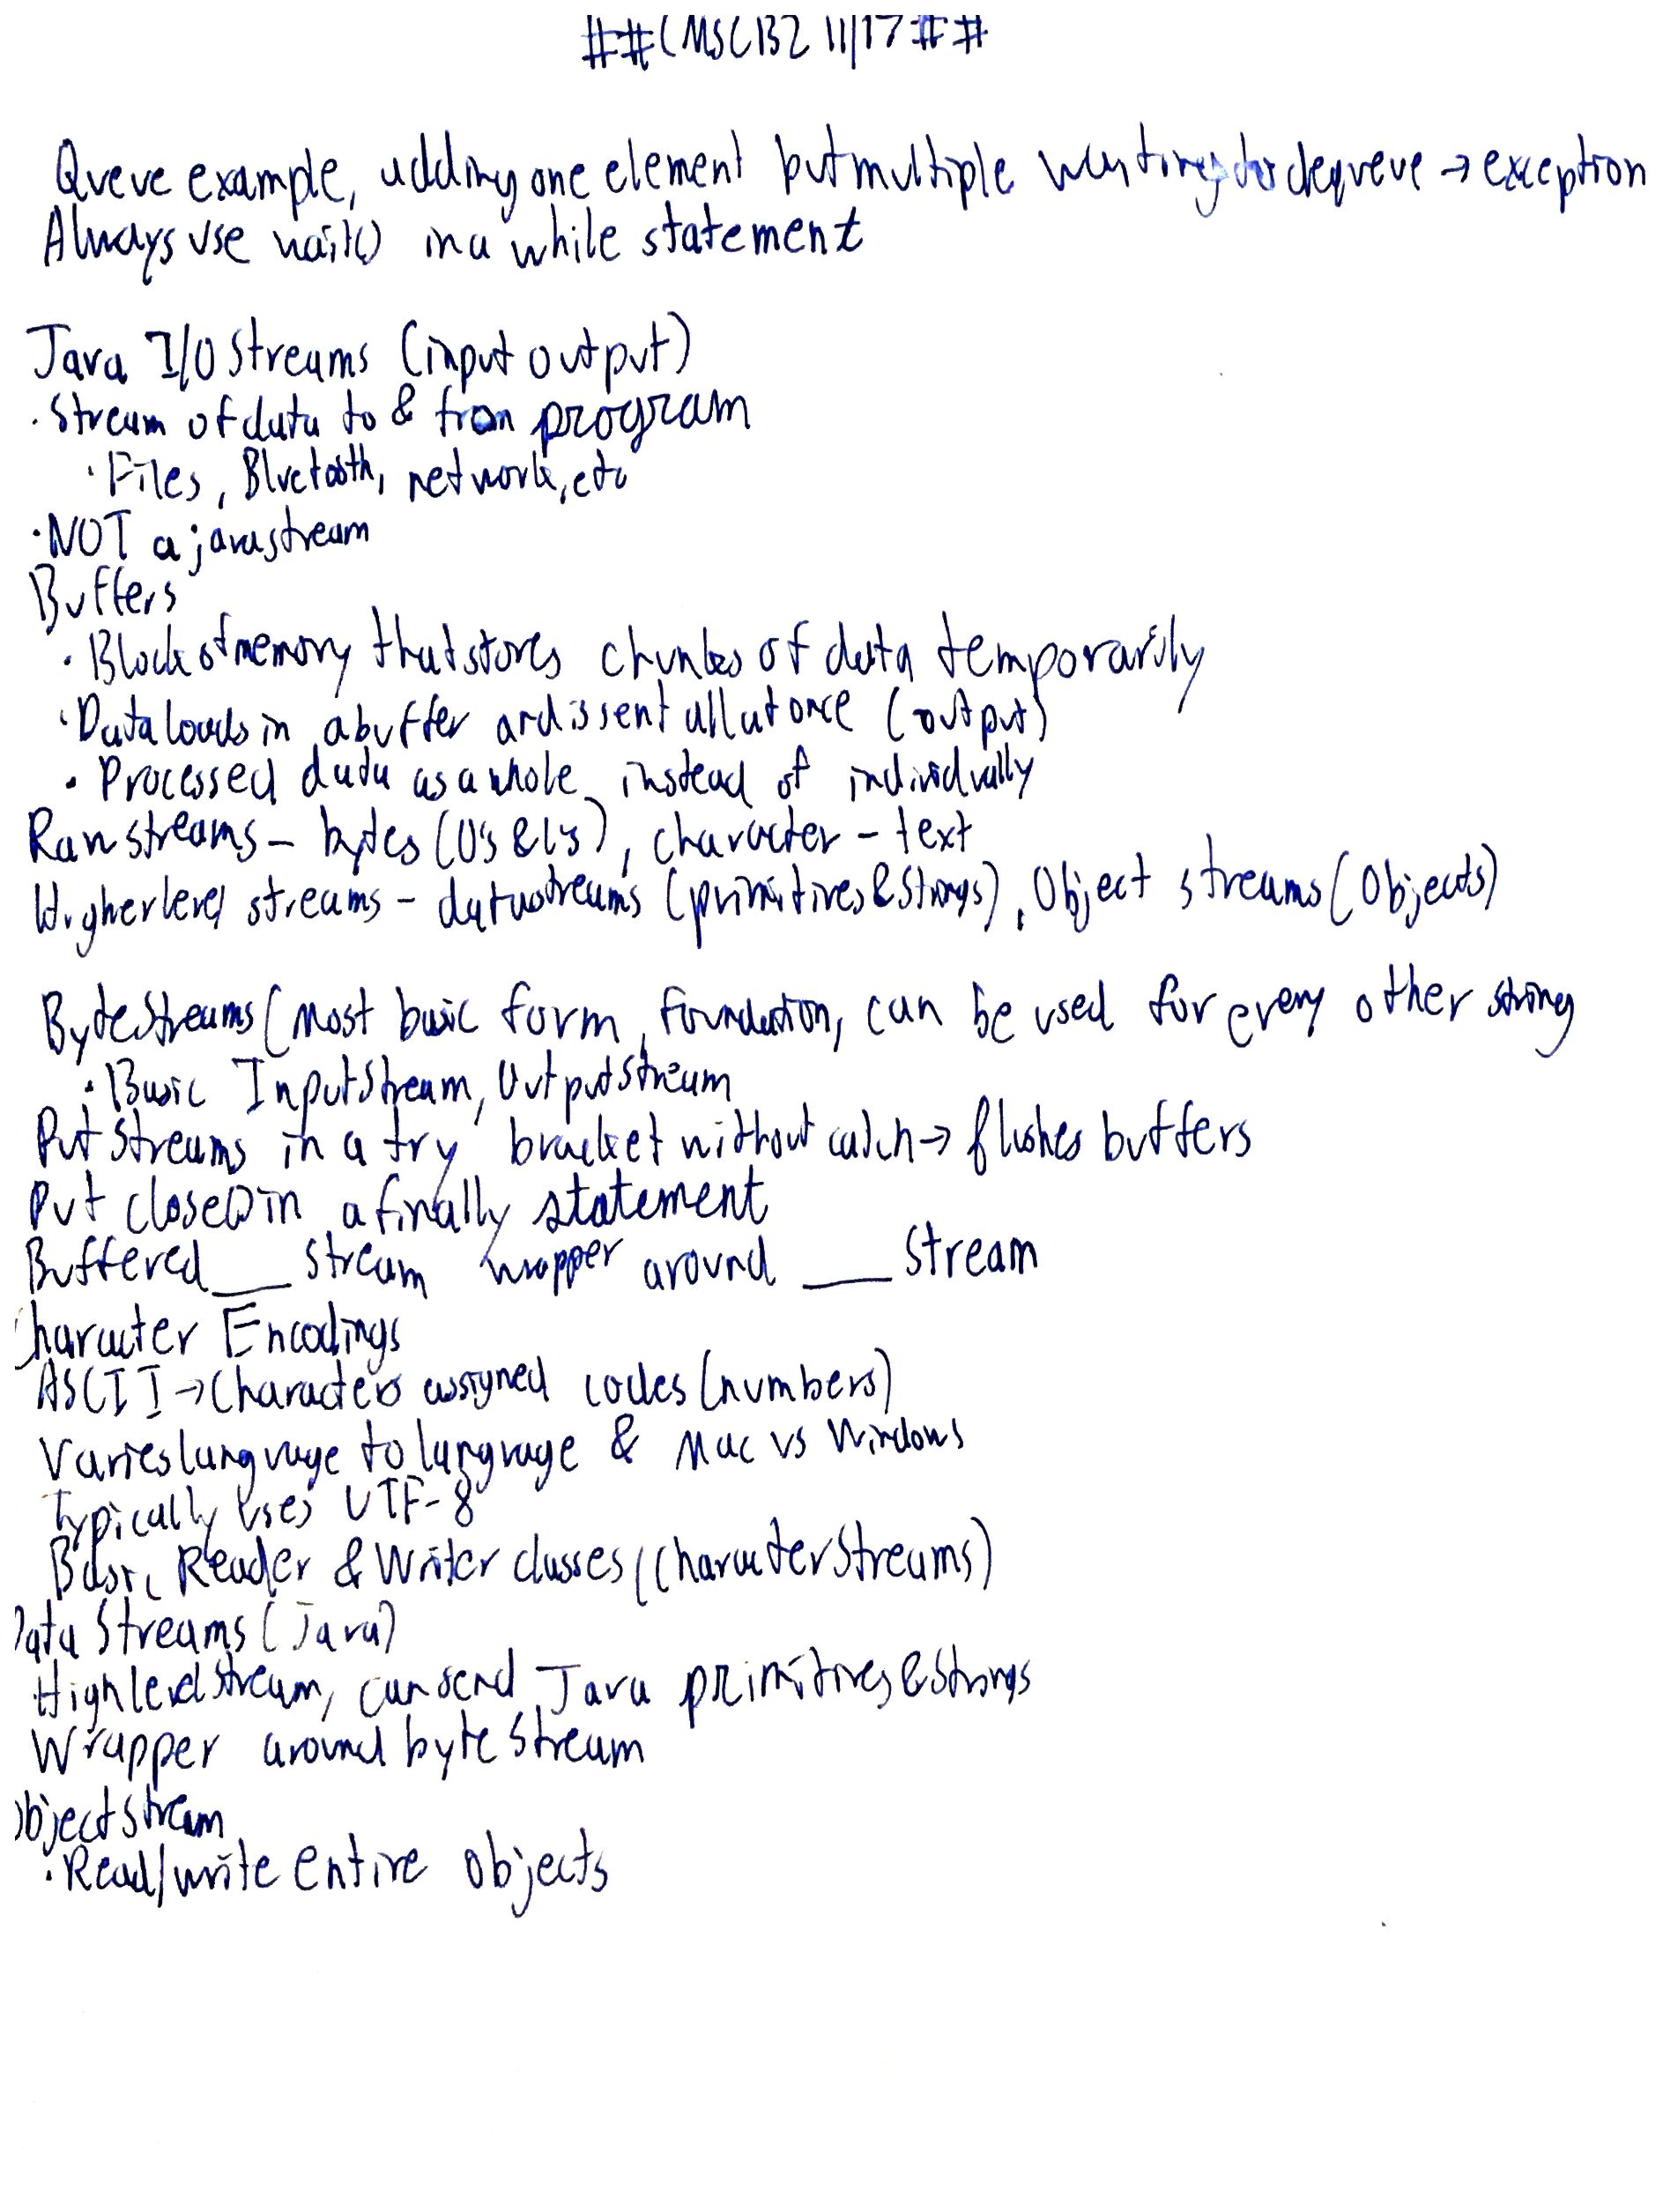 ##CMSC132 11/17##
Queue example, adding one element but multiple waiting for dequeue → exception
Always use wait() in a while statement
Java I/O Streams (input output)
· Stream of data to & from program
· Files, Bluetooth, network, etc
· NOT a java stream
Buffers
· Block of memory that stores chunks of data temporarily
· Data loads in a buffer and is sent all at once (output)
· Processed data as a whole instead of individually
Raw streams - bytes (0's & 1's), character - text
Higher level streams - datastreams (primitives & Strings), Object streams (Objects)
Byte Streams (Most basic form, foundation, can be used for every other string
· Basic InputStream, OutputStream
Put streams in a try bracket without catch → flushes buffers
Put close() in a finally statement
Buffered ___ stream wrapper around ___ stream
Character Encodings
ASCII → Characters assigned codes (numbers)
Varies language to language & Mac vs Windows
Typically uses UTF-8
Basic Reader & Writer classes (Character Streams)
Data Streams (Java)
High level stream, can send Java primitives & Strings
Wrapper around byte stream
Object stream
· Read/write entire objects